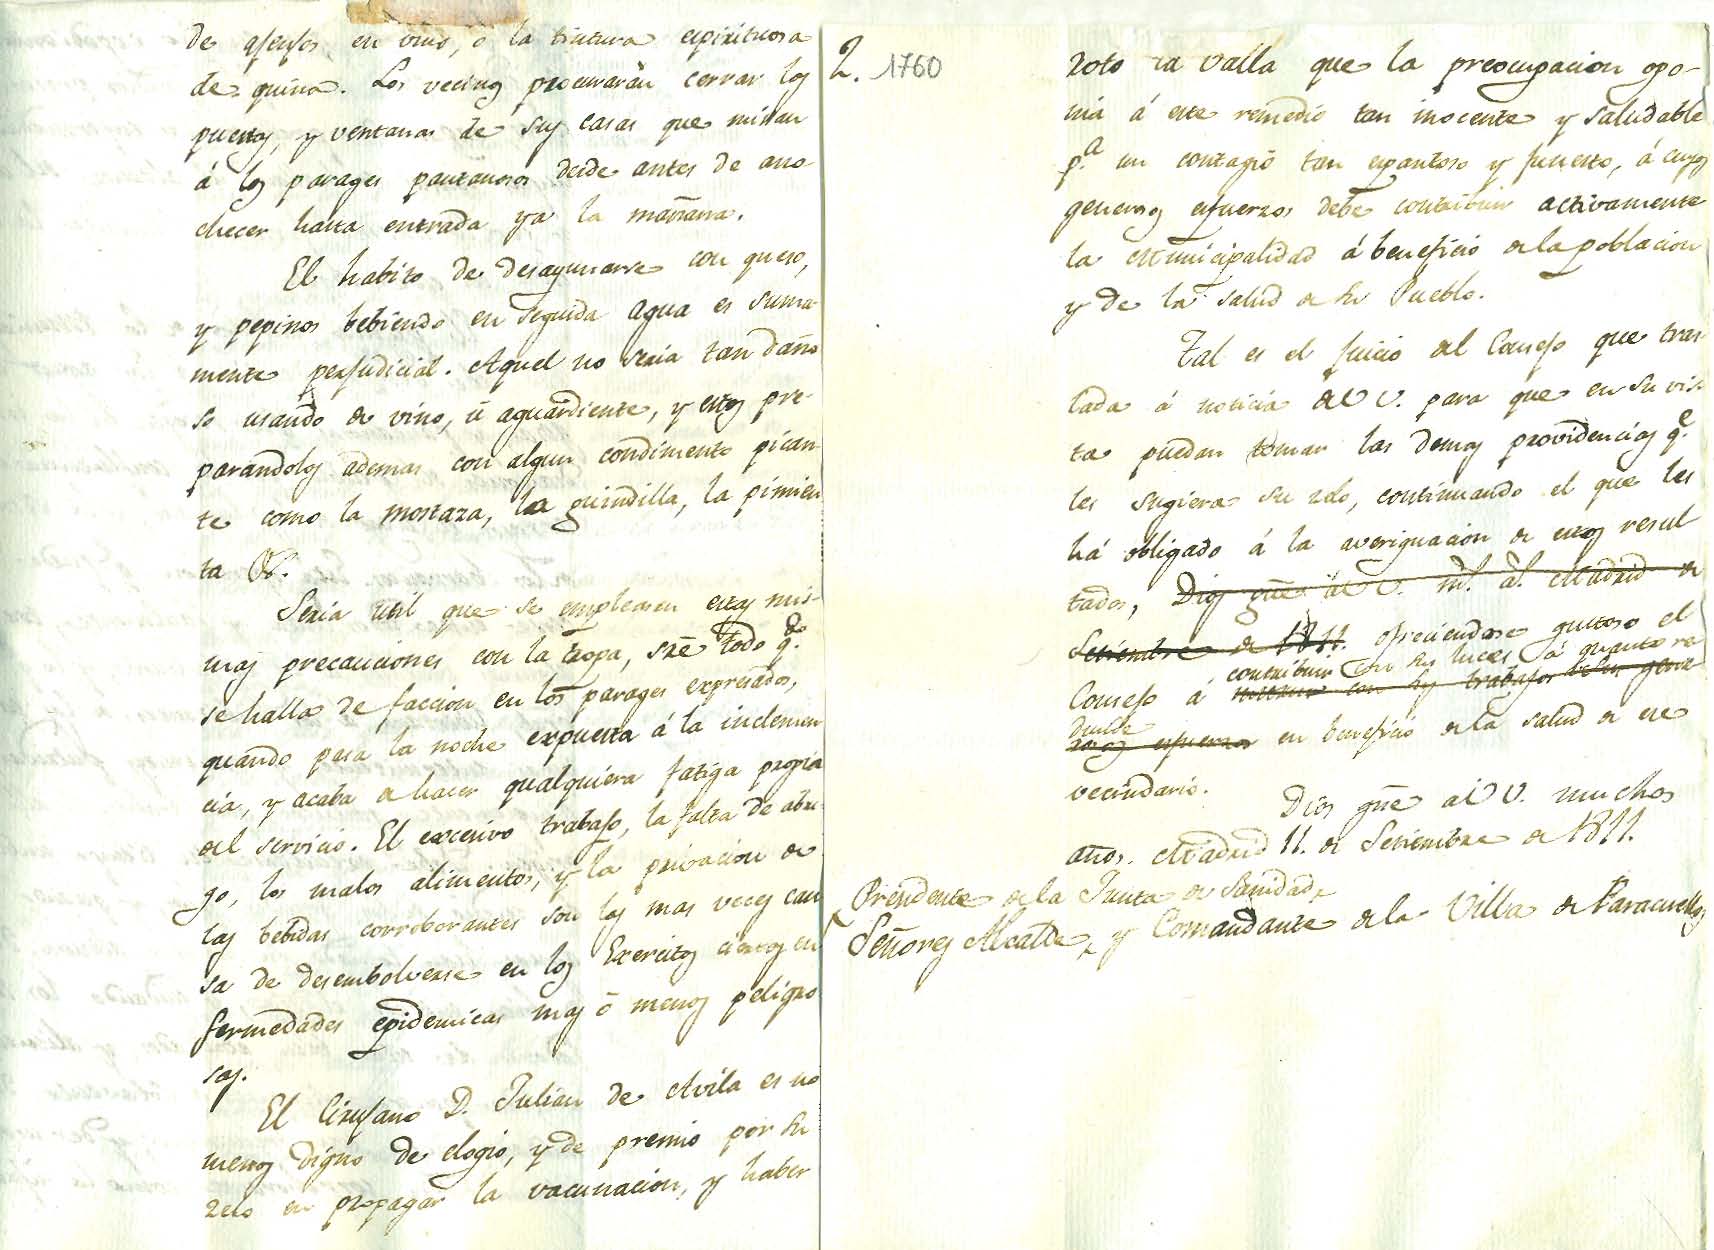 de ajenjos en vino, o la tintura espirituosa
de quina. Los vecinos procurarán cerrar los
puertas, y ventanas de sus casas que miran
á los parages pantanosos desde antes de ano-
checer hasta entrada ya la mañana.
El habito de desayunarse con queso,
y pepinos bebiendo en seguida agua es suma-
mente perjudicial. Aquel no seria tan daño
so usando de vino, ú aguardiente, y estos pre-
parandolos ademas con algun condimento pican
te como la mostaza, la guindilla, la pimien
ta &c.
Seria util que se empleasen estas mis-
mas precauciones con la tropa, sre. todo qdo.
se halla de faccion en los parages expresados,
quando pasa la noche expuesta á la inclemen
cia, y acaba de hacer qualquiera fatiga propia
del servicio. El excesivo trabajo, la falta de abri-
go, los malos alimentos, y la privacion de
las bebidas corroborantes son las mas veces cau
sa de desembolverse en los Exercitos ciertas en
fermedades epidemicas mas ó menos peligro
sas.
El Cirujano D. Julian de Avila es no
menos digno de elogio, y de premio por su
zelo en propagar la vacunacion, y haber
2. 1760
roto la valla que la preocupacion opo-
nia á este remedio tan inocente y saludable
pa. un contagio tan espantoso y funesto, á cuyos
generosos esfuerzos debe contribuir activamente
la Municipalidad á beneficio de la poblacion
y de la salud de su Pueblo.
Tal es el juicio del Consejo que tras
lada á noticia de V. para que en su vis
ta puedan tomar las demas providencias qe.
les sugiera su zelo, continuando el que les
há obligado á la averiguacion de estos resul
tados, Dios gũe á V. ms. as. Madrid de
Setiembre de 1811. ofreciendose gustoso el
contribuir con sus luces á quanto re
Consejo á con sus trabajos gene
dunde
rosos esfuerzos en beneficio de la salud de ese
vecindario.
Dios gũe á V. muchos
años. Madrid 11. de Setiembre de 1811.
Presidente de la Junta de Sanidad,
Señores Alcalde, y Comandante de la Villa de Paracuellos